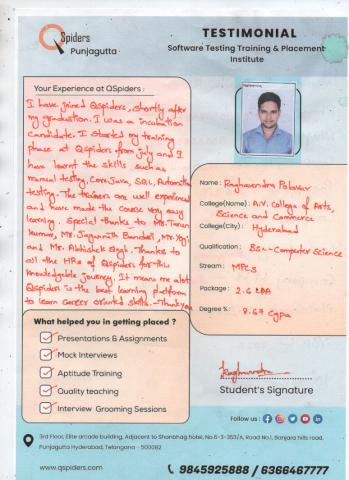 QSpiders
Punjagutta
TESTIMONIAL
Software Testing Training & Placement
Institute
Your Experience at QSpiders :
I have joined Qspiders, shortly after
my graduation. I was a incubation
candidate. I started my training
phase at Qspiders from july and I
have learnt the skills such as
manual testing, Core Java, SQL, Automation
testing. The trainers are well experienced
and have made the course very easy
learning. Special thanks to Mr. Tarun
kumar, Mr. Jagannath Bandeli, Mr. Yogi
and Mr. Abhishek singh. Thanks to
all the HRs of Qspiders for this
knowledgable journey. It means me alot
Qspiders is the best learning platform
to learn career oriented skills. Thank you
Name : Raghavendra
College(Name) : A.V. College of Arts,
Science and Commerce
College(City) : Hyderabad
Qualification : BSc - Computer Science
Stream : MPCS
Package : 2.6 LPA
Degree % : 8.67 Cgpa
What helped you in getting placed ?
Presentations & Assignments
Mock Interviews
Aptitude Training
Quality teaching
Interview Grooming Sessions
Student's Signature
Follow us :
3rd Floor, Elite arcade building, Adjacent to Shanbhag hotel, No.6-3-353/A, Road No.1, Banjara hills road,
Punjagutta Hyderabad, Telangana - 500082
www.qspiders.com
9845925888 / 6366467777